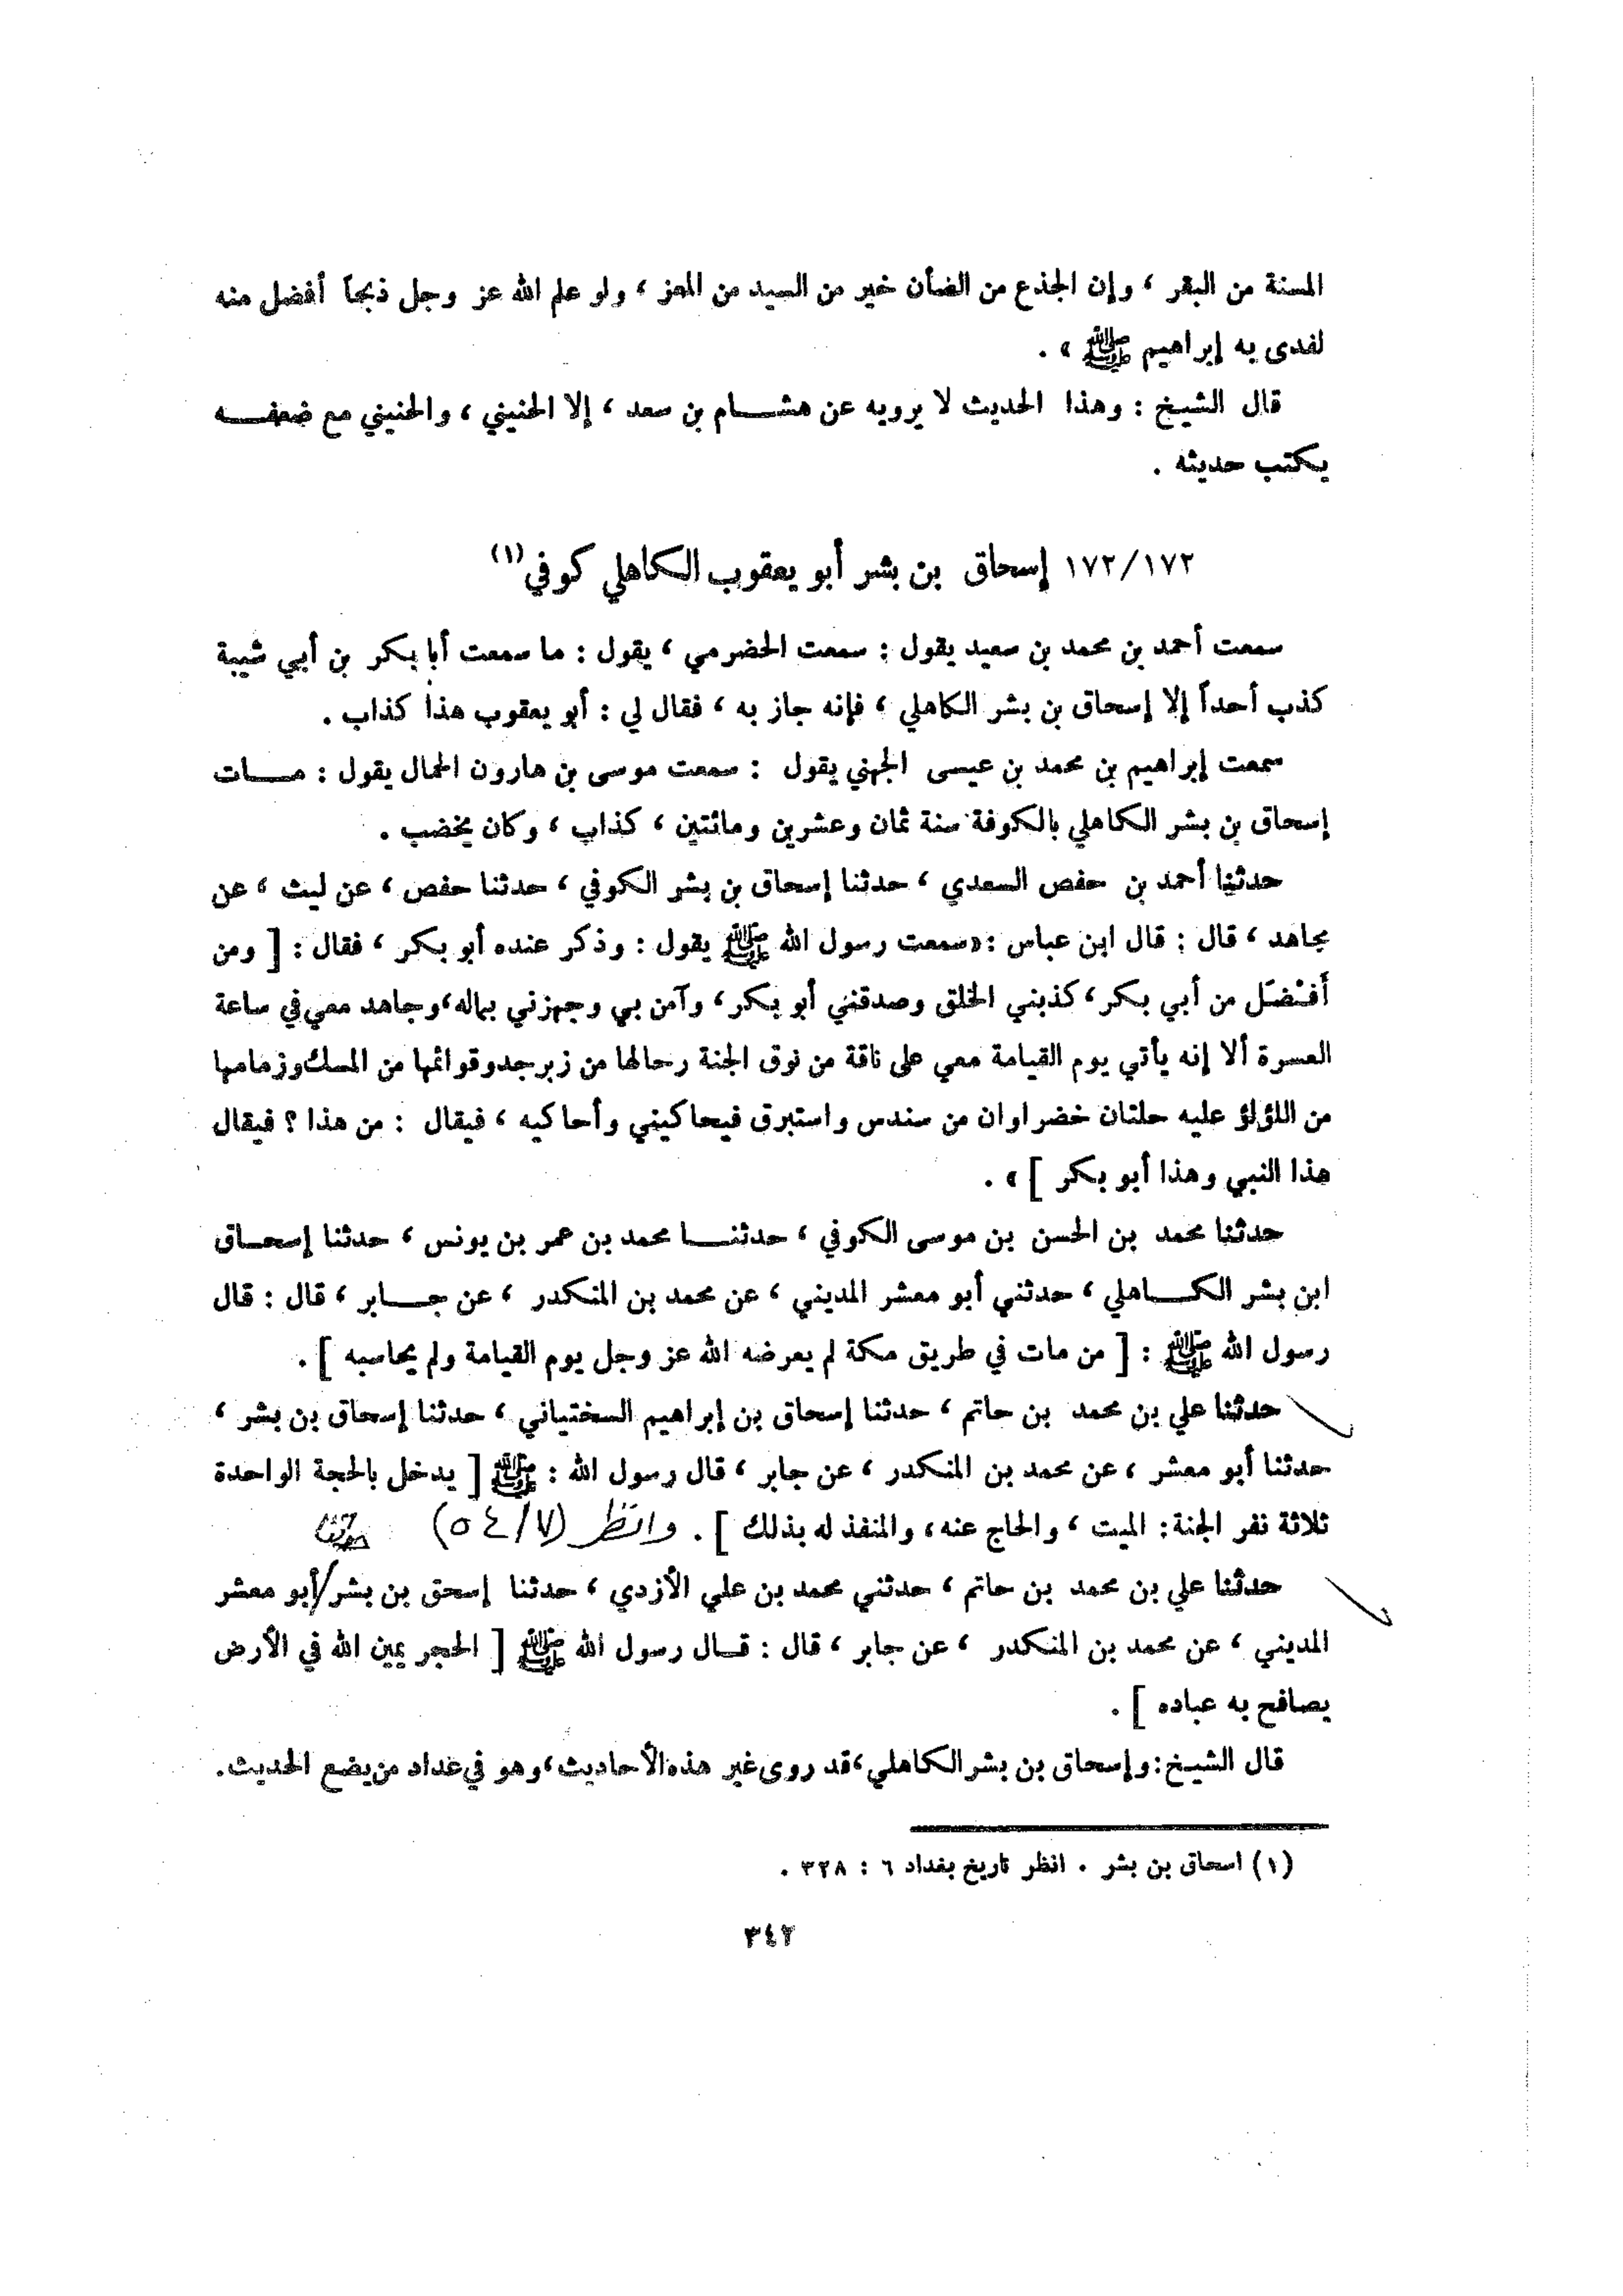 المسنة من البقر ، وإن الجذع من الضأن خير من السيد من المعز ، ولو علم الله عز وجل ذبحاً أفضل منه
لفدى به إبراهيم ﷺ » .
قال الشيخ : وهذا الحديث لا يرويه عن هشام بن سعد ، إلا الحنيني ، والحنيني مع ضعفه
يكتب حديثه .
١٧٢/١٧٢ إسحاق بن بشر أبو يعقوب الكاهلي كوفي (١)
سمعت أحمد بن محمد بن سعيد يقول : سمعت الحضرمي ، يقول : ما سمعت أبا بكر بن أبي شيبة
كذب أحداً إلا إسحاق بن بشر الكاهلي ، فإنه جاز به ، فقال لي : أبو يعقوب هذا كذاب .
سمعت إبراهيم بن محمد بن عيسى الجهني يقول : سمعت موسى بن هارون الحمال يقول : مات
إسحاق بن بشر الكاهلي بالكوفة سنة ثمان وعشرين ومائتين ، كذاب ، وكان يخضب .
حدثنا أحمد بن حفص السعدي ، حدثنا إسحاق بن بشر الكوفي ، حدثنا حفص ، عن ليث ، عن
مجاهد ، قال : قال ابن عباس : « سمعت رسول الله ﷺ يقول : وذكر عنده أبو بكر ، فقال : [ ومن
أَفْضَل من أبي بكر ، كذبني الخلق وصدقني أبو بكر ، وآمن بي وجهزني بماله ، وجاهد معي في ساعة
العسرة ألا إنه يأتي يوم القيامة معي على ناقة من نوق الجنة رحالها من زبرجد وقوائمها من المسك وزمامها
من اللؤلؤ عليه حلتان خضراوان من سندس واستبرق فيحاكيني وأحاكيه ، فيقال : من هذا ؟ فيقال
هذا النبي وهذا أبو بكر ] » .
حدثنا محمد بن الحسن بن موسى الكوفي ، حدثنا محمد بن عمر بن يونس ، حدثنا إسحاق
ابن بشر الكاهلي ، حدثني أبو معشر المديني ، عن محمد بن المنكدر ، عن جابر ، قال : قال
رسول الله ﷺ : [ من مات في طريق مكة لم يعرضه الله عز وجل يوم القيامة ولم يحاسبه ] .
حدثنا علي بن محمد بن حاتم ، حدثنا إسحاق بن إبراهيم السختياني ، حدثنا إسحاق بن بشر ،
حدثنا أبو معشر ، عن محمد بن المنكدر ، عن جابر ، قال رسول الله : ﷺ [ يدخل بالحجة الواحدة
ثلاثة نفر الجنة : الميت ، والحاج عنه ، والمنفذ له بذلك ] . وانظر (٥٤/٧) حدثنا
حدثنا علي بن محمد بن حاتم ، حدثني محمد بن علي الأزدي ، حدثنا إسحق بن بشر/أبو معشر
المديني ، عن محمد بن المنكدر ، عن جابر ، قال : قال رسول الله ﷺ [ الحجر يمين الله في الأرض
يصافح به عباده ] .
قال الشيخ : وإسحاق بن بشر الكاهلي ، قد روى غير هذه الأحاديث ، وهو في عداد من يضع الحديث .
(١) اسحاق بن بشر . انظر تاريخ بغداد ٦ : ٣٢٨ .
٣٤٢